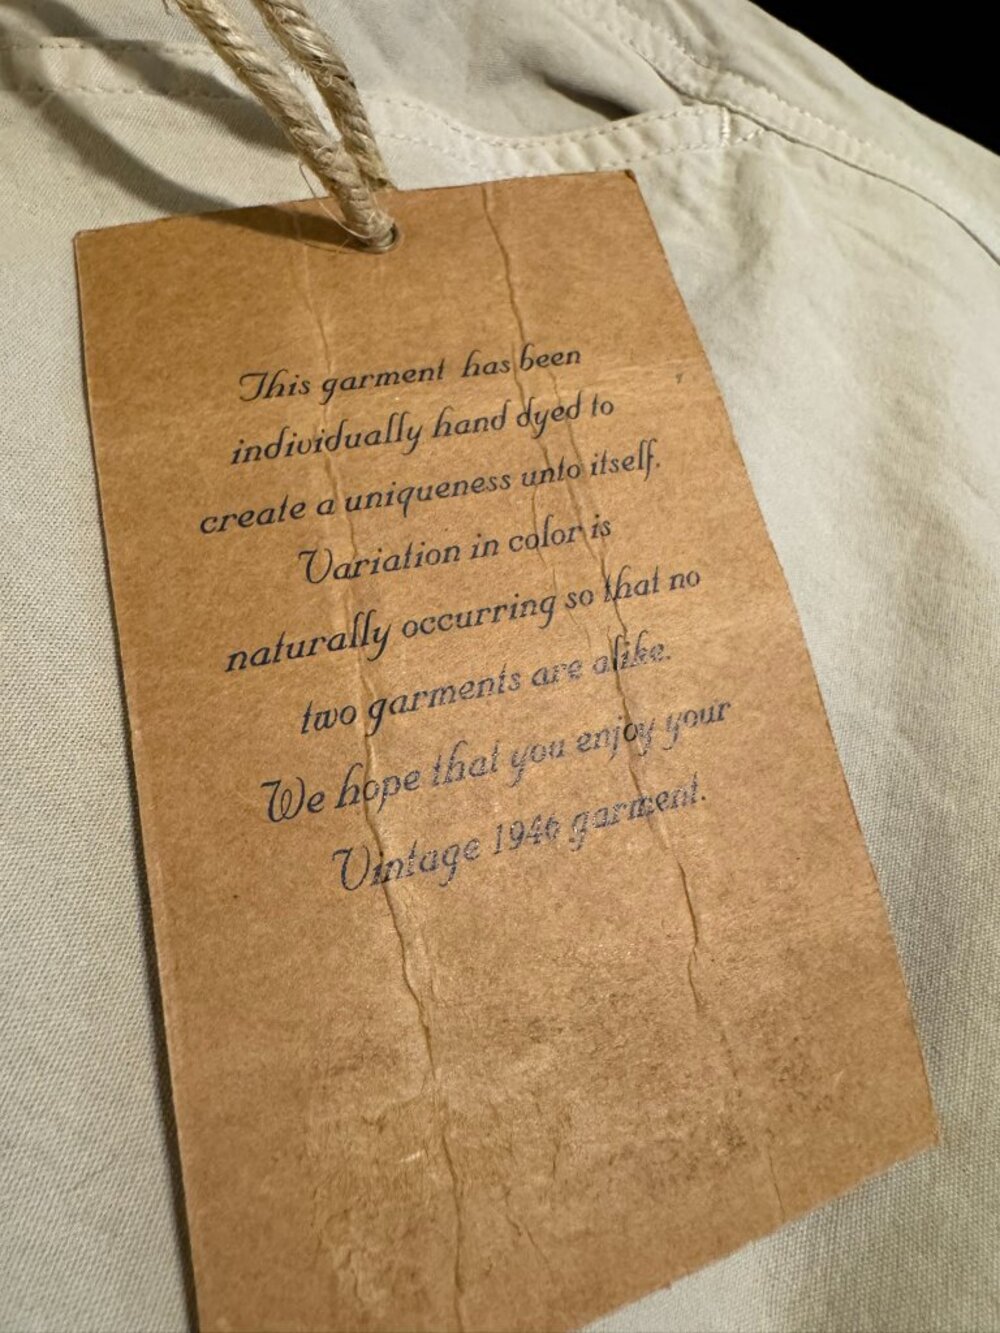 This garment has been
individually hand dyed to
create a uniqueness unto itself.
Variation in color is
naturally occurring so that no
two garments are alike.
We hope that you enjoy your
Vintage 1946 garment.